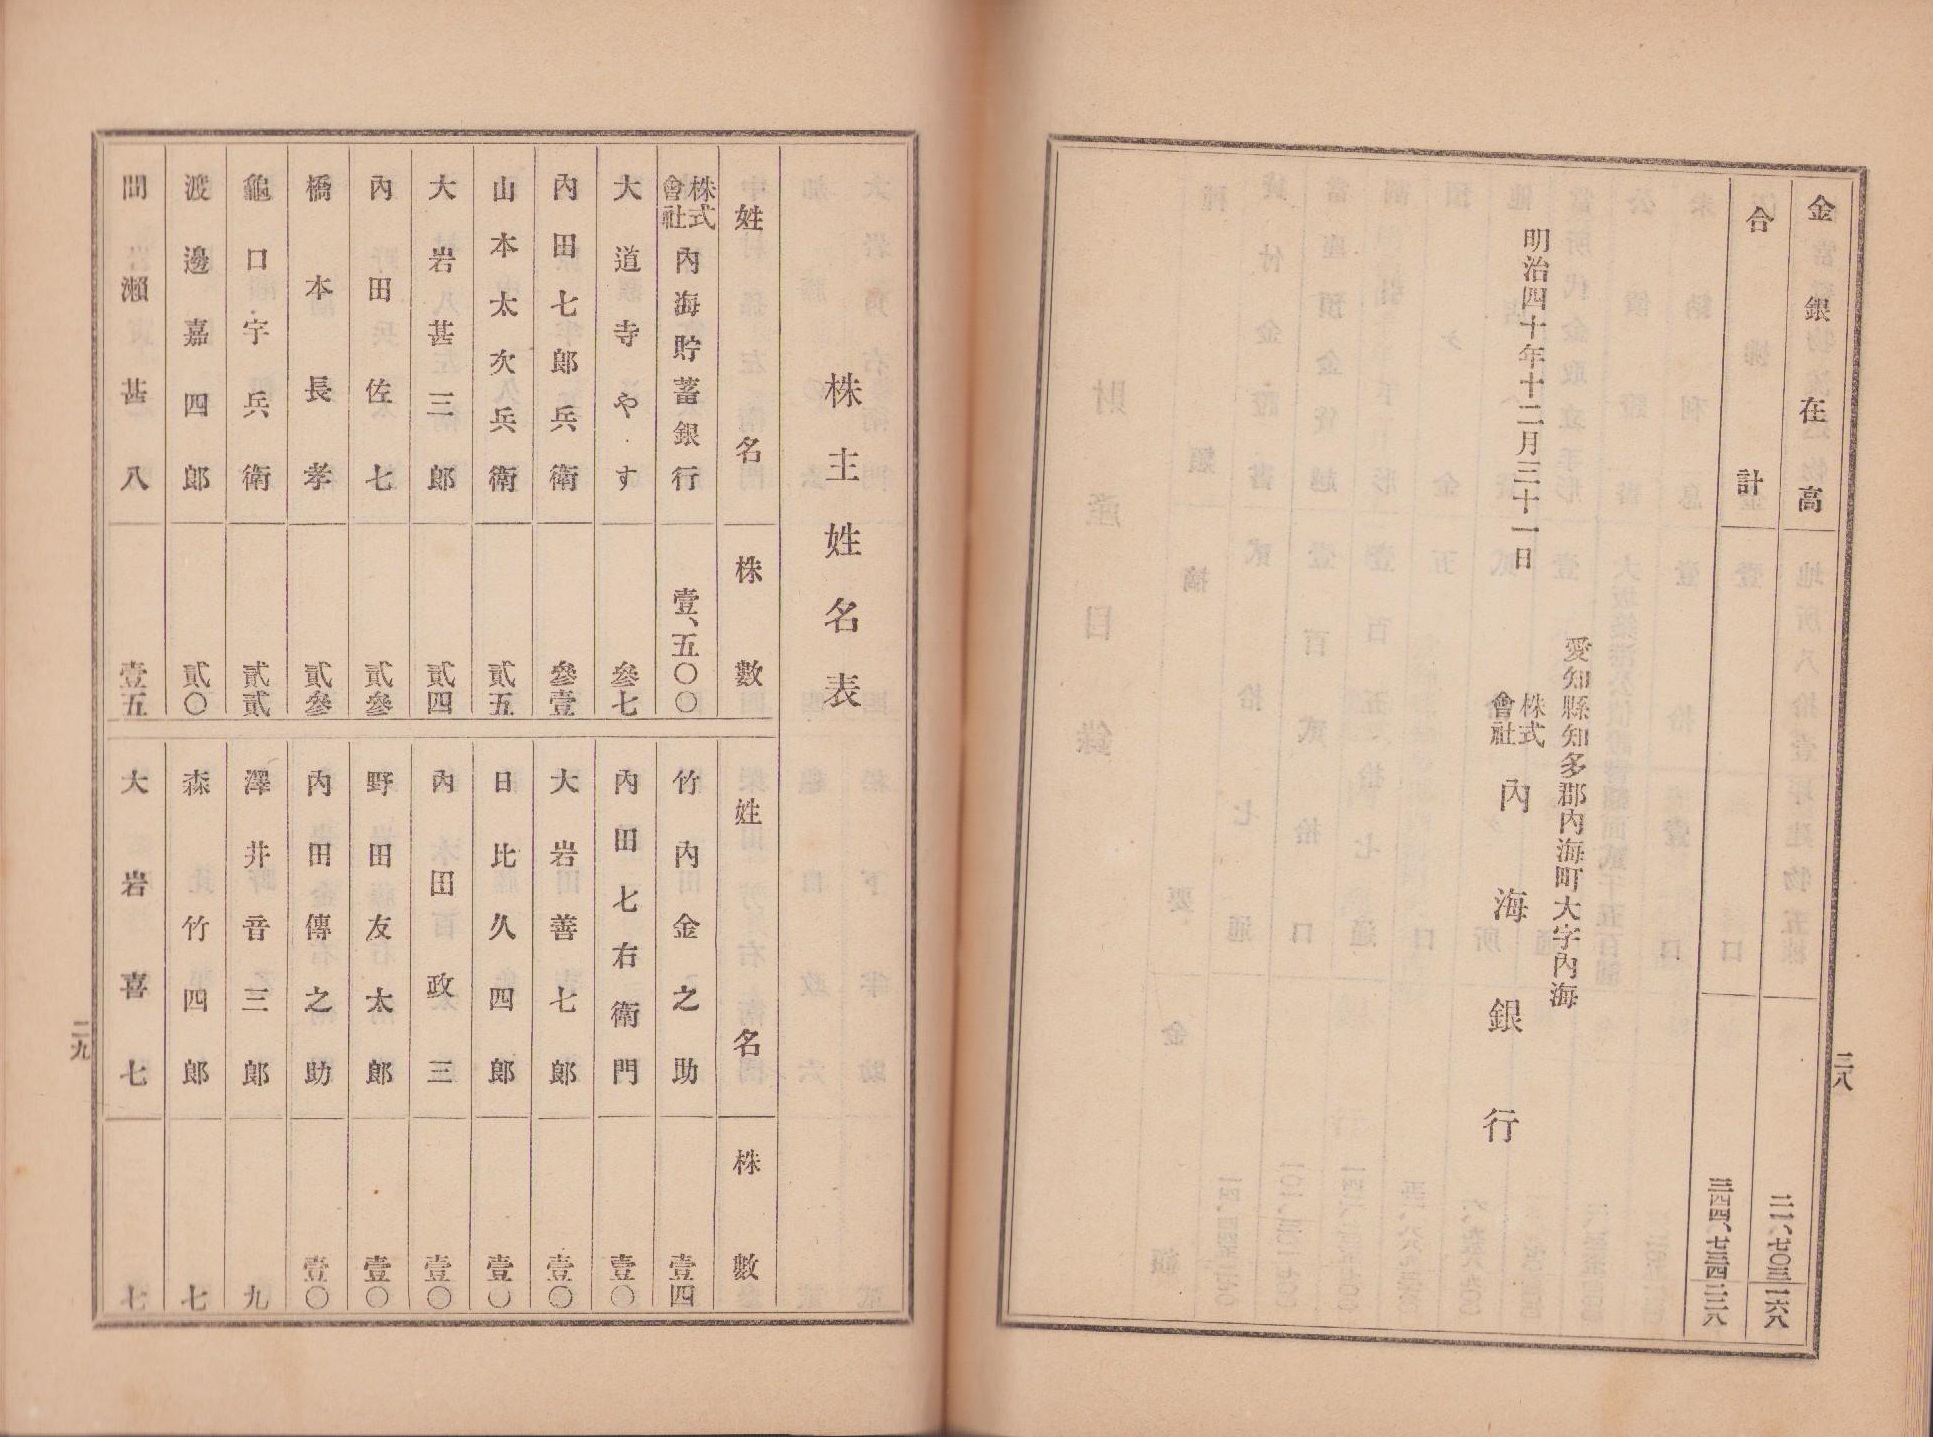 金銀在高 二一、七〇三 一六八
合計 三四四、七三四 二三八
明治四十年十二月三十一日
愛知縣知多郡內海町大字內海
株式會社 內海銀行
二八
株主姓名表
姓名 株數
株式會社 內海貯蓄銀行 壹、五〇〇
大道寺やす 參七
內田七郞兵衞 參壹
山本太次兵衞 貳五
大岩甚三郞 貳四
內田佐七 貳參
橋本長孝 貳參
龜口宇兵衞 貳貳
渡邊嘉四郞 貳〇
間瀨甚八 壹五
姓名 株數
竹內金之助 壹四
內田七右衞門 壹〇
大岩善七郞 壹〇
日比久四郞 壹〇
內田政三 壹〇
野田友太郞 壹〇
內田傳之助 壹〇
澤井音三郞 九
森竹四郞 七
大岩喜七 七
二九